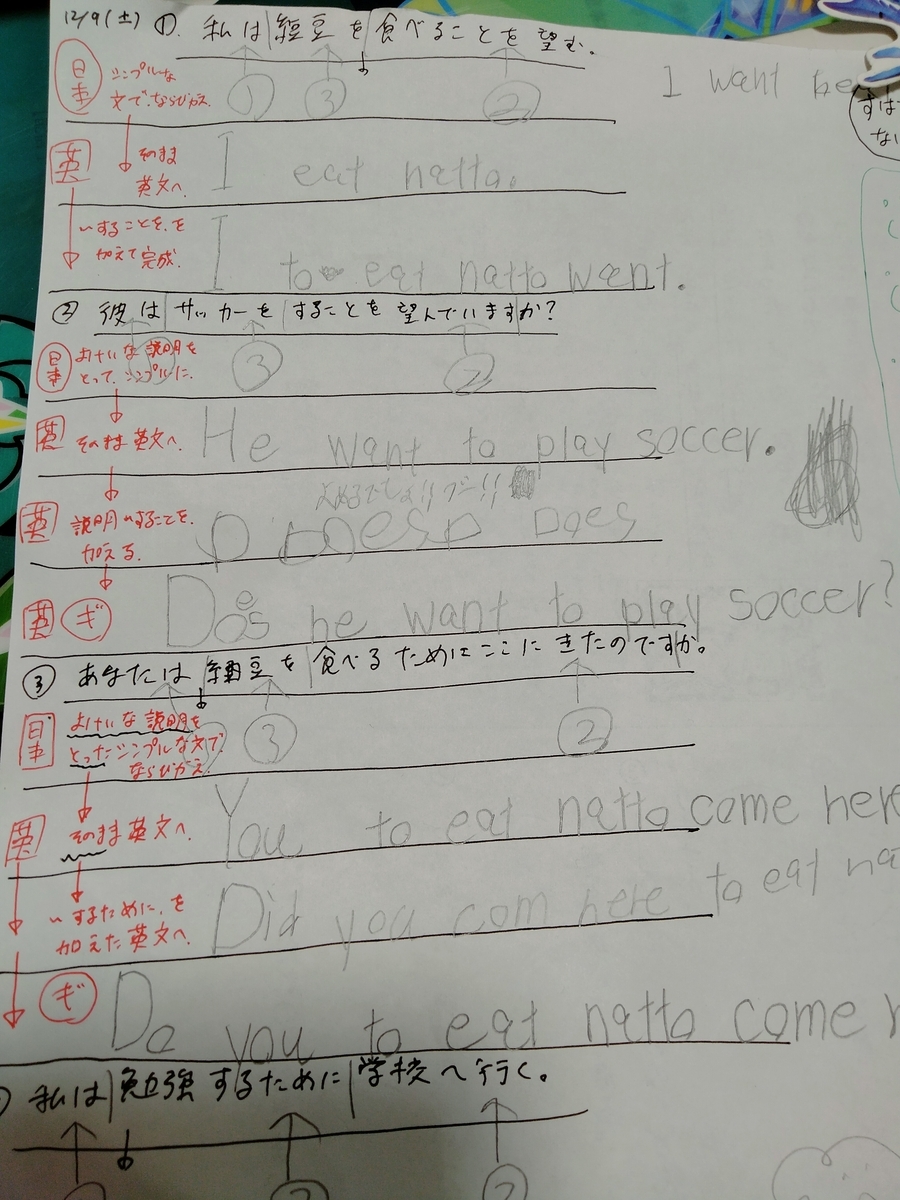 12/9(土) ①. 私は 納豆を 食べることを 望む。
I want
日本 シンプルな
文で、ならびかえ
① ③ ②
英 そのまま
英文へ。
I eat natto.
〜することを、を
加えて完成。
I to eat natto want.
② 彼は サッカーを することを 望んでいますか?
日本 よけいな説明を
とって、シンプルに。
③ ②
英 そのまま英文へ
He want to play soccer.
英 説明〜することを、
加える。
Does
英 ギ
Does he want to play soccer?
③ あなたは 納豆を 食べるために ここに きたのですか。
日本 よけいな説明を
とったシンプルな文で
ならびかえ。
③ ②
英 そのまま英文へ。
You to eat natto come here
〜するために、を
加えた英文へ。
Did you com here to eat
ギ
Do you to eat natto come
私は 勉強するために 学校へ行く。